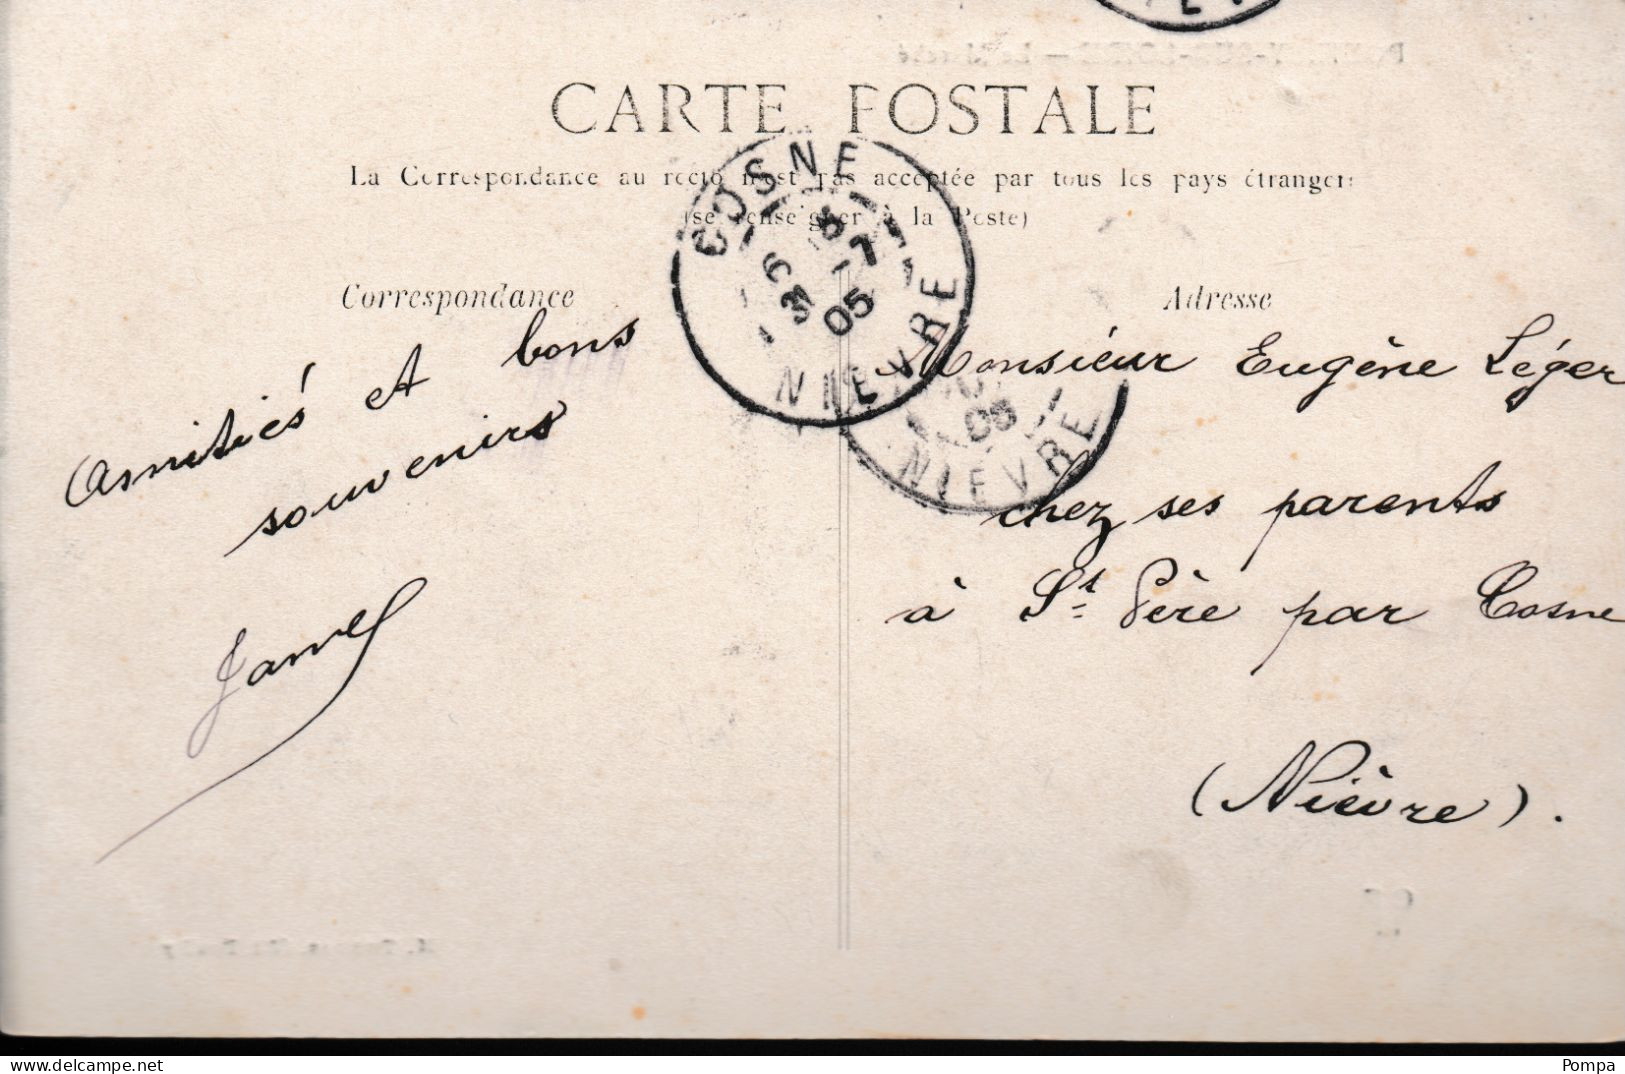 CARTE POSTALE
La Correspondance au recto n'est pas acceptée par tous les pays étrangers
(se renseigner à la Poste)
COSNE
05
NIÈVRE
Correspondance
Adresse
Amitiés et bons
souvenirs
Monsieur Eugène Léger
05
NIEVRE
chez ses parents
à St Père par Cosne
(Nièvre).
Pompa